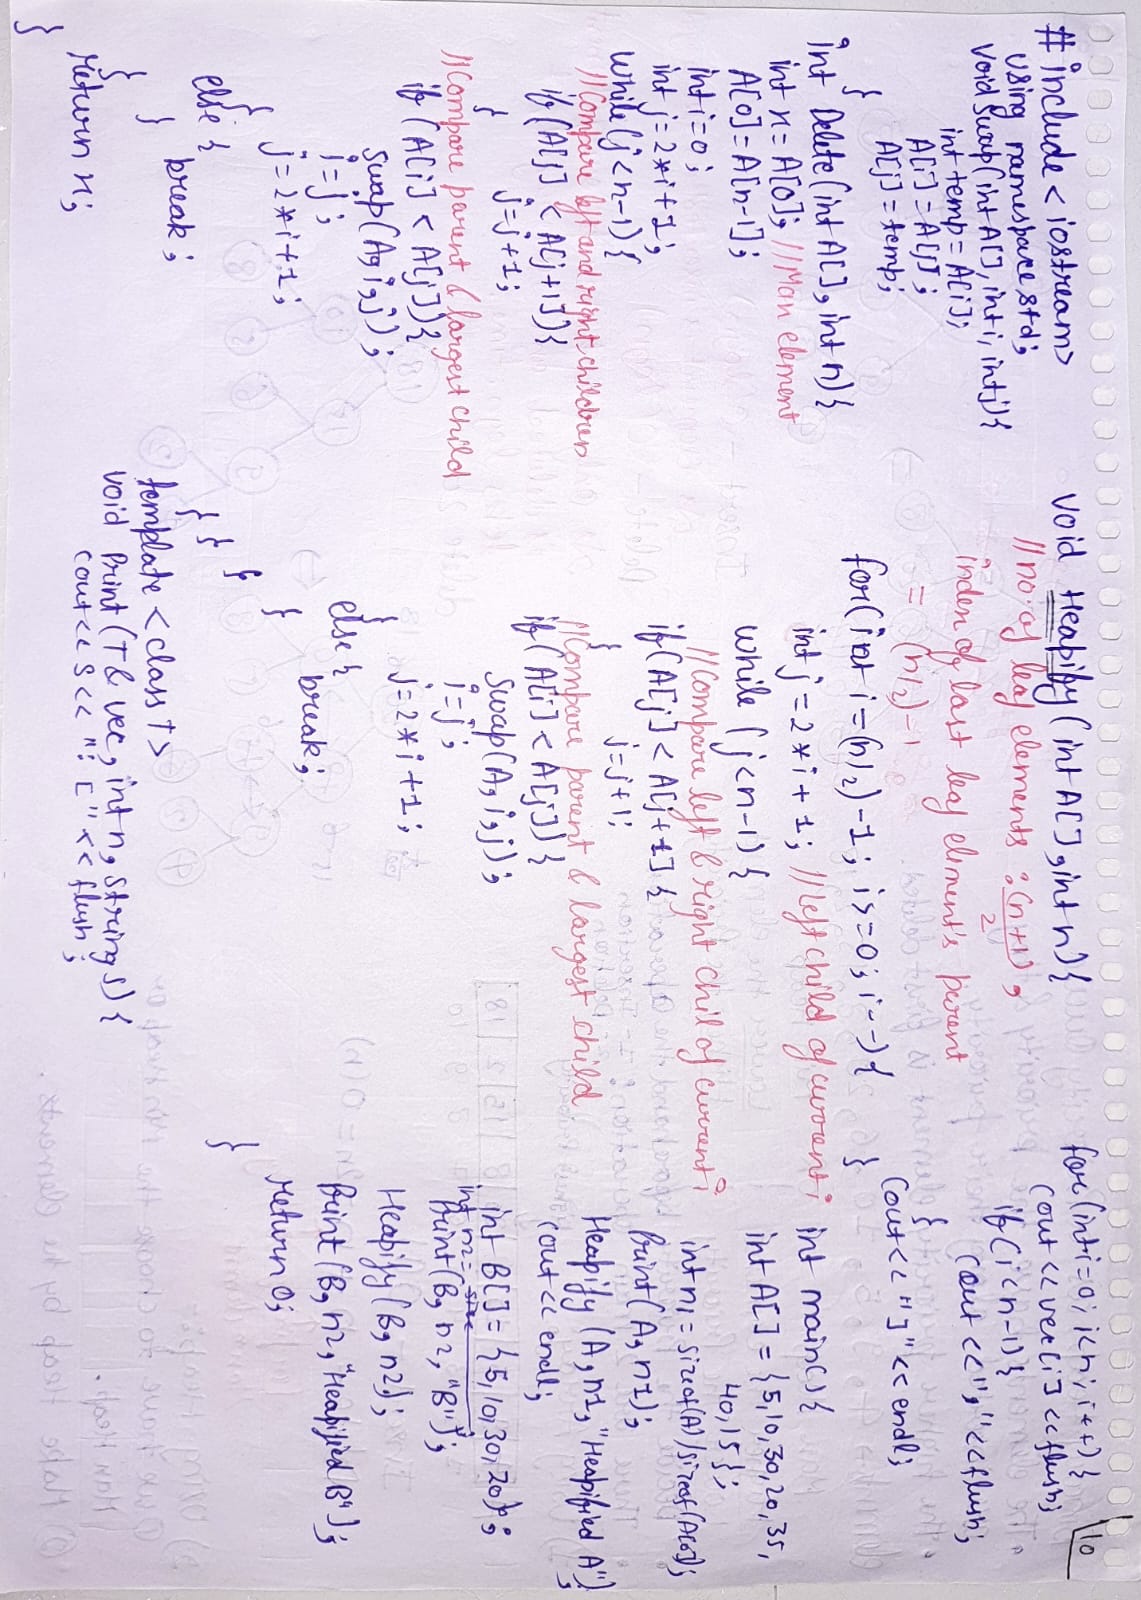 # include < iostream>
using namespace std;
Void Swap(int A[], int i, int j){
int temp = A[i];
A[i] = A[j];
A[j] = temp;
}
int Delete(int A[], int n){
int x = A[0]; // Max element
A[0]=A[n-1];
int i=0;
int j=2*i+1;
while(j<n-1){
// Compare left and right children
if (A[j] < A[j+1]){
j=j+1;
}
// Compare parent & largest child
if (A[i] < A[j]){
swap(A, i, j);
i=j;
j=2*i+1;
}
else {
break;
}
}
return x;
}
void Heapify (int A[], int n){
// no. of leaf elements : (n+1)/2,
index of last leaf element's parent
= (n/2)-1
for(int i=(n/2)-1; i>=0; i--){
int j=2*i+1; // left child of current i
while (j<n-1){
// Compare left & right Chil of current i
if(A[j]<A[j+1] {
j=j+1;
}
// Compare parent & largest child
if(A[i]<A[j]){
swap(A, i, j);
i=j;
j=2*i+1;
}
else {
break;
}
}
} }
template <class T>
void Print (T& vec, int n, string s) {
cout<< s << ": [" << flush;
10
for(int i=0; i<n; i++) {
cout << vec[i] << flush;
if(i<n-1){
cout <<"," <<flush;
}
cout<< "]" << endl;
}
int main() {
int A[] = {5,10,30,20,35,
40,15};
int n1 = sizeof(A)/sizeof(A[0]);
Print(A, n1);
Heapify (A, n1, "Heapified A");
cout<< endl;
int B[] = {5,10,30,20};
int n2=
Print(B, n2, "B");
Heapify(B, n2);
Print (B, n2, "Heapified B");
return 0;
}